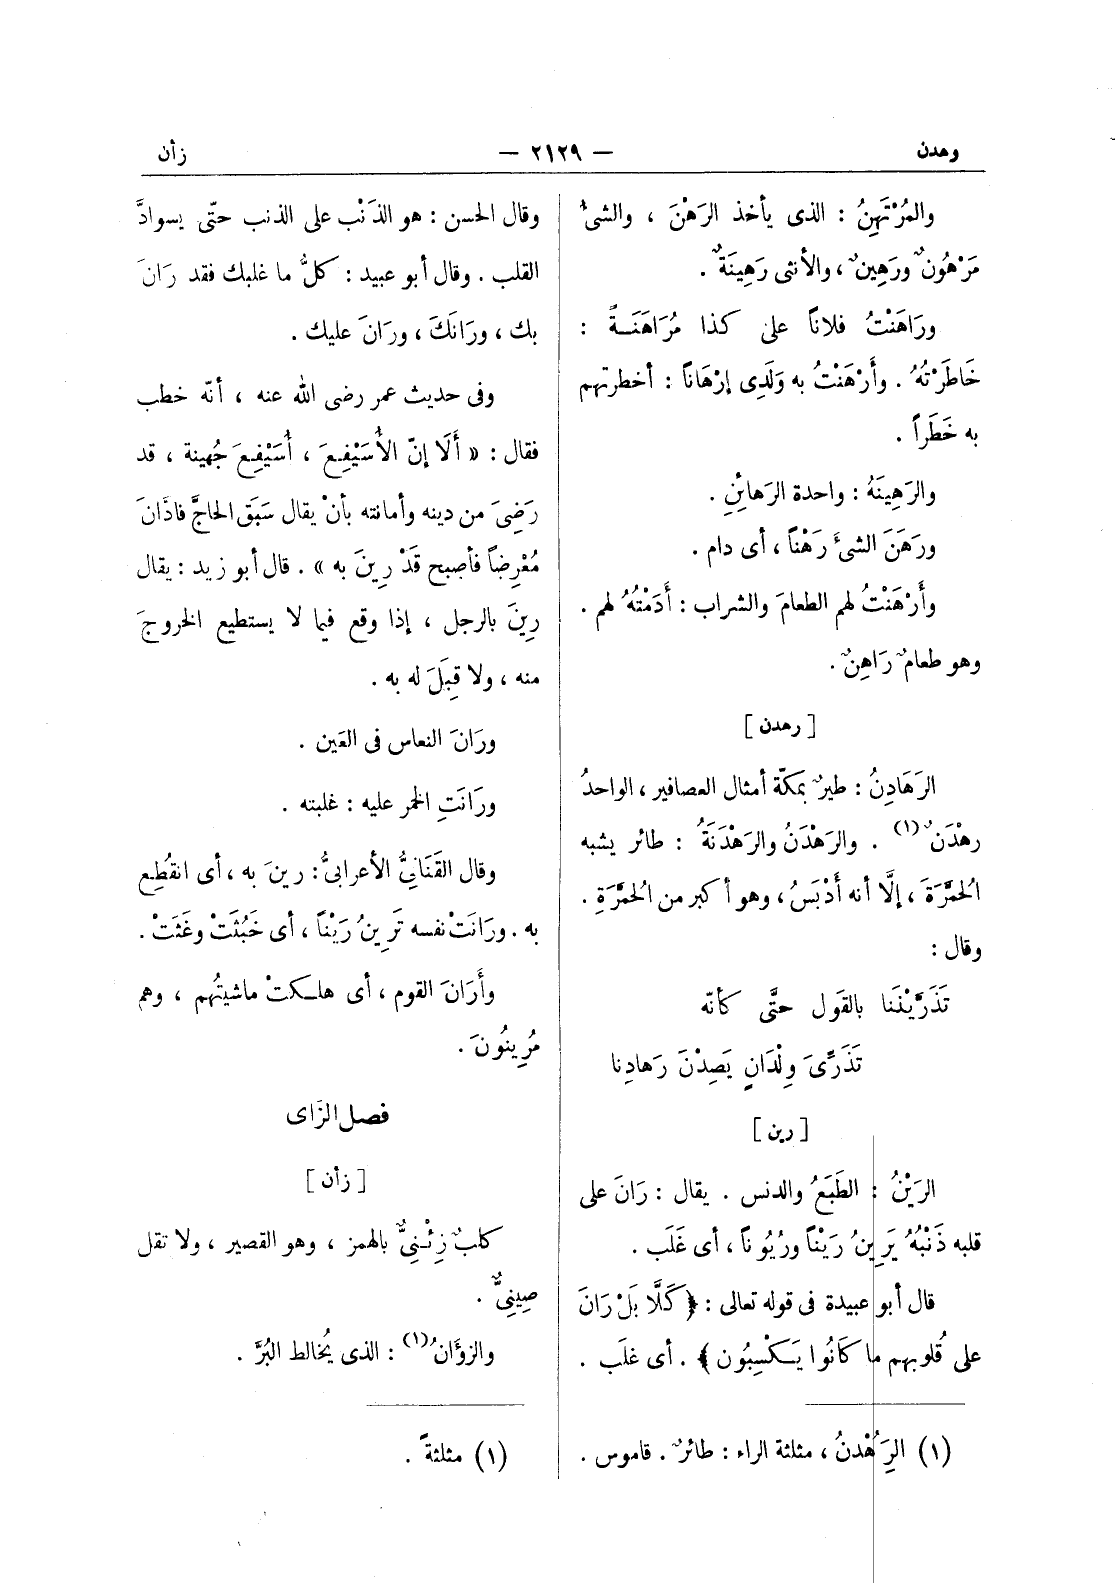 وهدن — ٢١٢٩ — زأن
والمُرْتَهِنُ : الذى يأخذ الرَهْنَ ، والشىءُ
مَرْهُونٌ ورَهِينٌ ، والأنثى رَهِينَةٌ .
ورَاهَنْتُ فلاناً على كذا مُرَاهَنَةً :
خَاطَرْتُهُ . وأَرْهَنْتُ به وَلَدِى إرْهَاناً : أخطرتهم
به خَطَراً .
والرَهِينَةُ : واحدة الرَهائِنِ .
ورَهَنَ الشىءُ رَهْناً ، أى دام .
وأَرْهَنْتُ لهم الطعامَ والشرابَ : أَدَمْتُهُ لهم .
وهو طعامٌ رَاهِنٌ .
[ رهدن ]
الرَهَادِنُ : طيرٌ بمكّة أمثال العصافير ، الواحدُ
رهْدَنٌ (١) . والرَهْدَنُ والرَهْدَنَةُ : طائر يشبه
الحُمَّرَةَ ، إلَّا أنه أَدْبَسُ ، وهو أكبر من الحُمَّرَةِ .
وقال :
تَذَرَّيْنَنَا بالقَول حتَّى كأنّه
تَذَرِّىَ وِلْدَانٍ يَصِدْنَ رَهادِنا
[ رين ]
الرَيْنُ : الطَبَعُ والدنس . يقال : رَانَ على
قلبه ذَنْبُهُ يَرِينُ رَيْناً ورُيُوناً ، أى غَلَب .
قال أبو عبيدة فى قوله تعالى : ﴿ كَلَّا بَلْ رَانَ
على قُلوبهم ما كَانُوا يَكْسِبُون ﴾ . أى غلَب .
(١) الرَِهُْدنُ ، مثلثة الراء : طائرٌ . قاموس .
وقال الحسن : هو الذَنْب على الذنب حتّى يسوادَّ
القلب . وقال أبو عبيد : كلُّ ما غلبك فقد رَانَ
بك ، ورَانَكَ ، ورَانَ عليك .
وفى حديث عمر رضى الله عنه ، أنّه خطب
فقال : « أَلَا إنّ الأُسَيْفِعَ ، أُسَيْفِعَ جُهينة ، قد
رَضِىَ من دينه وأمانته بأنْ يقال سَبَق الحاجَّ فادَّانَ
مُعْرِضاً فأصبح قَدْ رِينَ به » . قال أبو زيد : يقال
رِينَ بالرجل ، إذا وقع فيما لا يستطيع الخروجَ
منه ، ولا قِبَلَ له به .
ورَانَ النعاس فى العَين .
ورَانَتِ الخمر عليه : غلبته .
وقال القَنَانِىُّ الأعرابىُّ : رينَ به ، أى انقُطِع
به . ورَانَتْ نفسه تَرِينُ رَيْناً ، أى خَبُثَتْ وغَثَتْ .
وأَرَانَ القوم ، أى هلكتْ ماشيتُهم ، وهم
مُرِينُونَ .
فصل الزَاى
[ زأن ]
كلبٌ زِئْنِىٌّ بالهمز ، وهو القصير ، ولا تقل
صِينِىٌّ .
والزوَّانُ (١) : الذى يُخالط البُرَّ .
(١) مثلثةً .